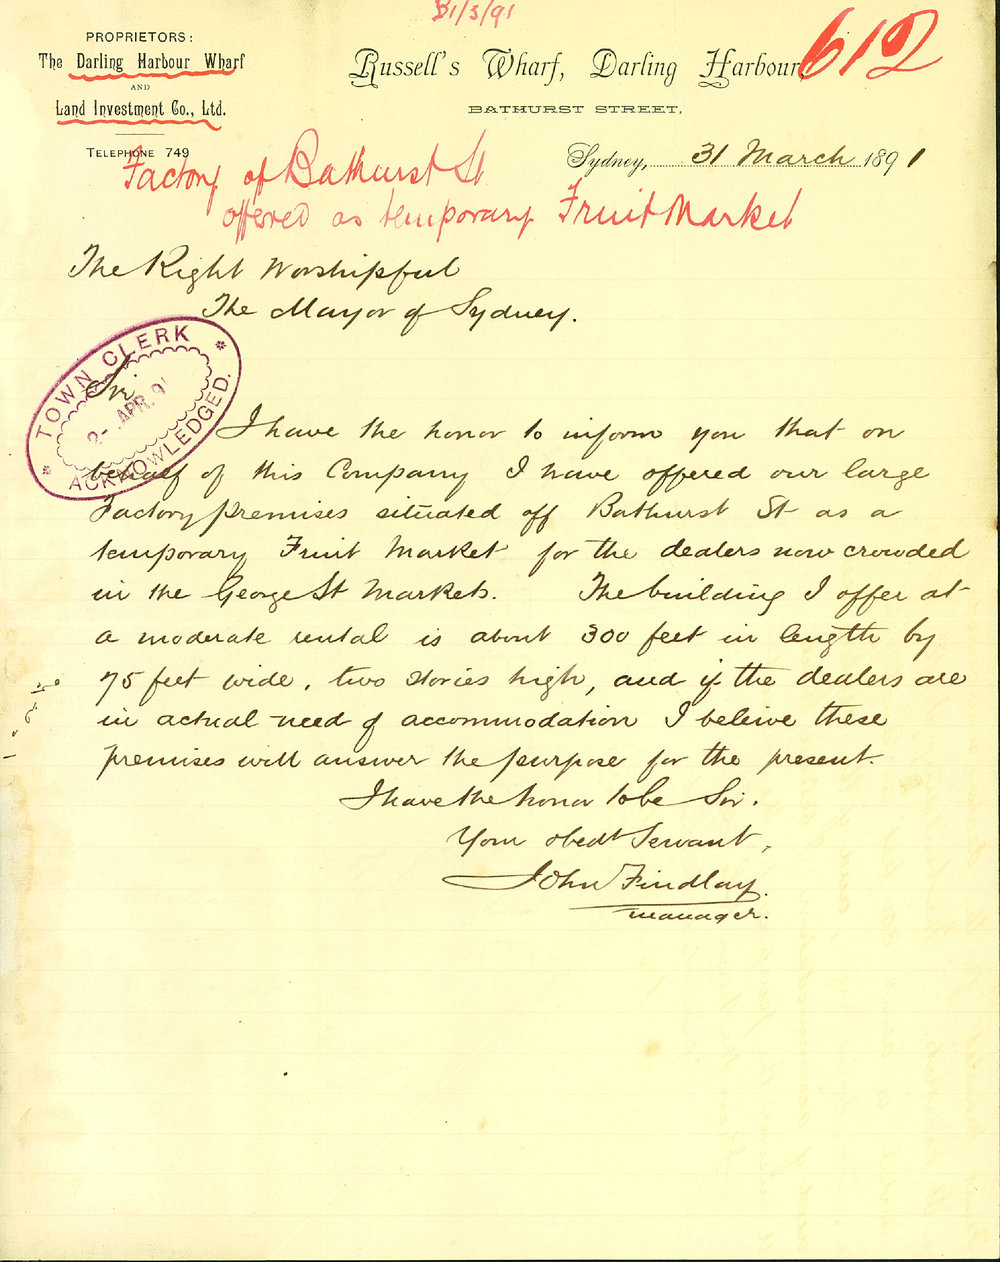 31/3/91
612
PROPRIETORS:
The Darling Harbour Wharf
AND
Land Investment Co., Ltd.
TELEPHONE 749
Russell's Wharf, Darling Harbour,
BATHURST STREET,
Sydney, 31 March 1891
Factory of Bathurst St
offered as temporary Fruit Market
The Right Worshipful
The Mayor of Sydney.
TOWN CLERK
2- APR. 91
ACKNOWLEDGED.
Sir,
I have the honor to inform you that on
behalf of this Company I have offered our large
Factory premises situated off Bathurst St as a
temporary Fruit Market for the dealers now crowded
in the George St Markets. The building I offer at
a moderate rental is about 300 feet in length by
75 feet wide, two stories high, and if the dealers are
in actual need of accommodation I beleive these
premises will answer the purpose for the present.
I have the honor to be Sir.
Your obedt Servant,
John Findlay.
manager.